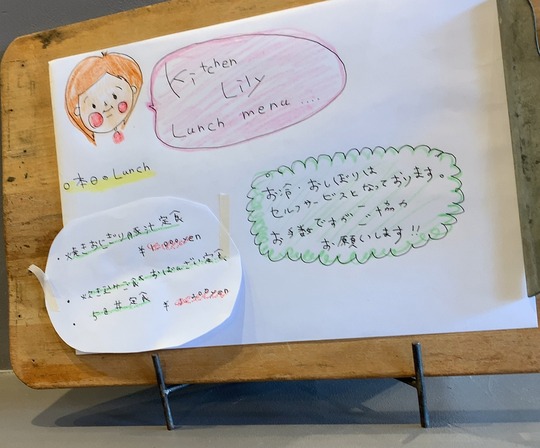 Kitchen
Lily
Lunch menu ....
本日の Lunch
お冷・おしぼりは
セルフサービスとなっております。
お手数ですが ご協力
お願いします!!
・焼きおにぎり豚汁定食
¥1,000yen
・炊き込みご飯&おばんざい定食
・うま丼定食
yen